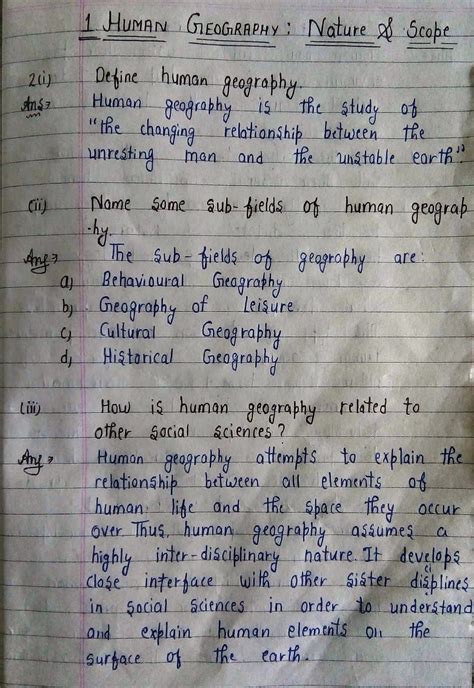 1. HUMAN GEOGRAPHY : Nature & Scope
2(i) Define human geography.
Ans→ Human geography is the study of
"the changing relationship between the
unresting man and the unstable earth".
(ii) Name some sub-fields of human geograp
-hy.
Ans→ The sub-fields of geography are:
a) Behavioural Geography
b) Geography of Leisure
c) Cultural Geography
d) Historical Geography
(iii) How is human geography related to
other social sciences?
Ans→ Human geography attempts to explain the
relationship between all elements of
human life and the space they occur
over Thus, human geography assumes a
highly inter-disciplinary nature. It develops
close interface with other sister displines
in social sciences in order to understand
and explain human elements on the
surface of the earth.